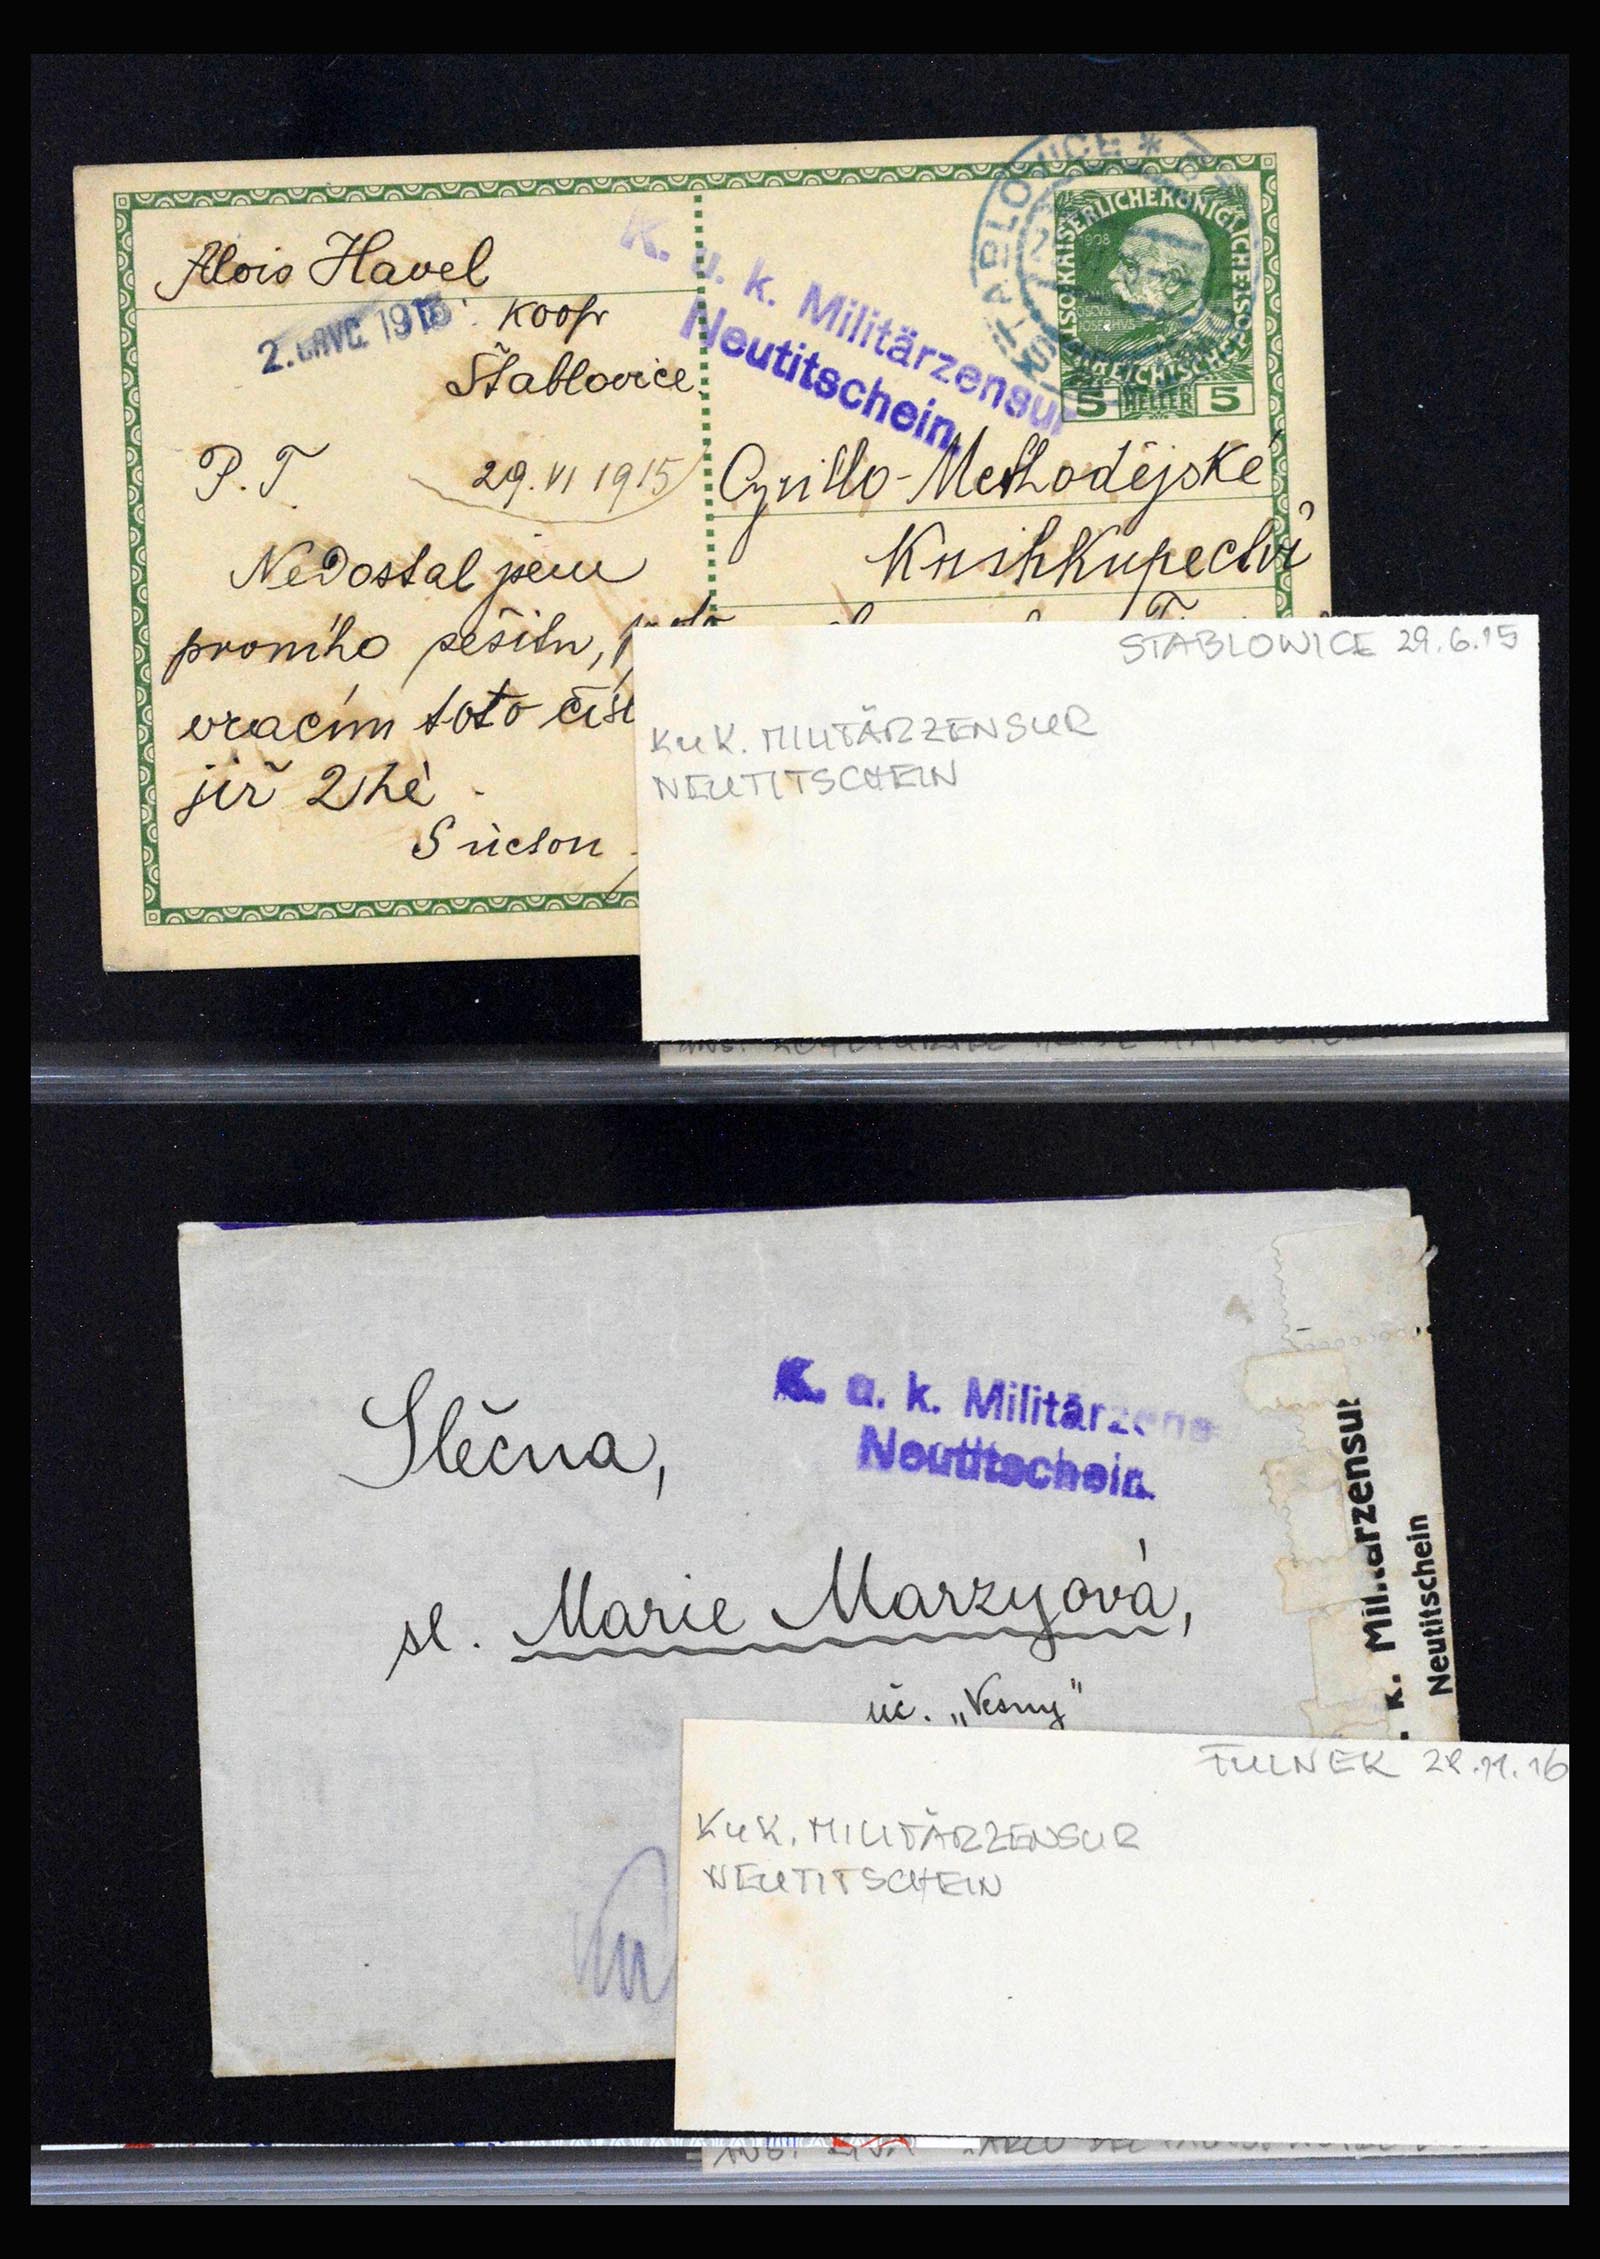 Alois Havel
koopr
Štáblovice
2. AVG. 1915
P.T.
29. VI 1915
Nedostal jsem
prvního sešitu,
vracím toto
již 2hé.
S úctou
K. u. k. Militärzensur
Neutitschein.
STABLOWICE *
KAISERLICHE KÖNIGLICHE ÖSTERREICHISCHE POST
1908
5 HELLER 5
Cyrillo-Methodějské
Knihkupectví
STABLOWICE 29.6.15
KuK. MILITÄRZENSUR
NEUTITSCHEIN
Slečna,
K. u. k. Militärzens
Neutitschein.
sl. Marie Marzyová,
uč. „Vesny"
. k. Militärzensur
Neutitschein
FULNEK 28.11.16
KuK. MILITÄRZENSUR
NEUTITSCHEIN